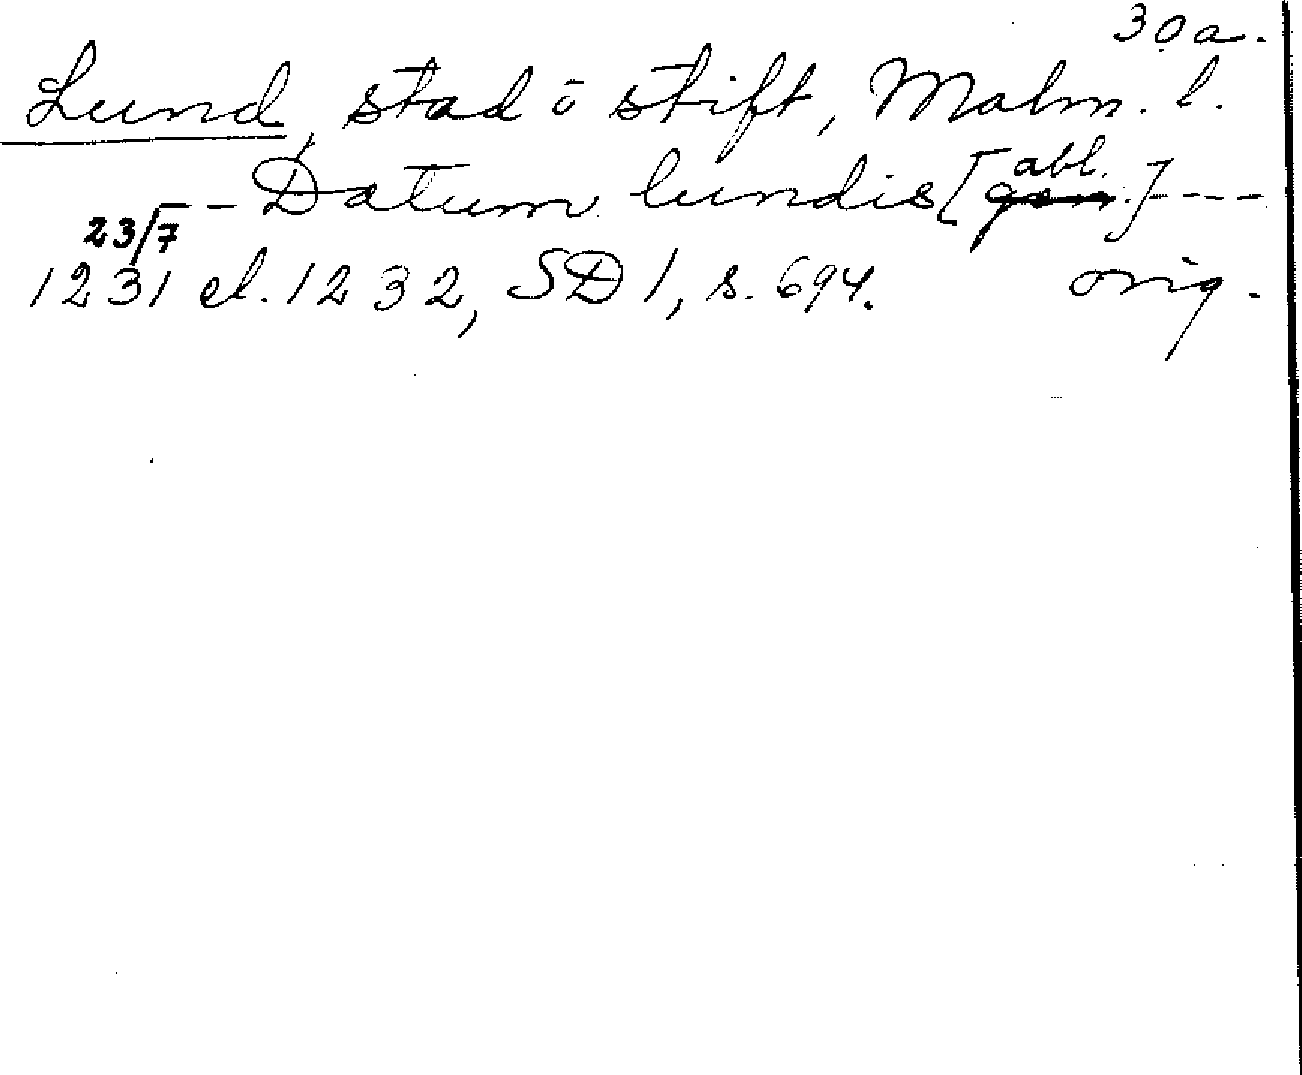 30a.
Lund, stad o stift, Malm. l.
-- Datum lundis [abl.] ---
23/7
1231 el. 1232, SD 1, s. 694. orig.